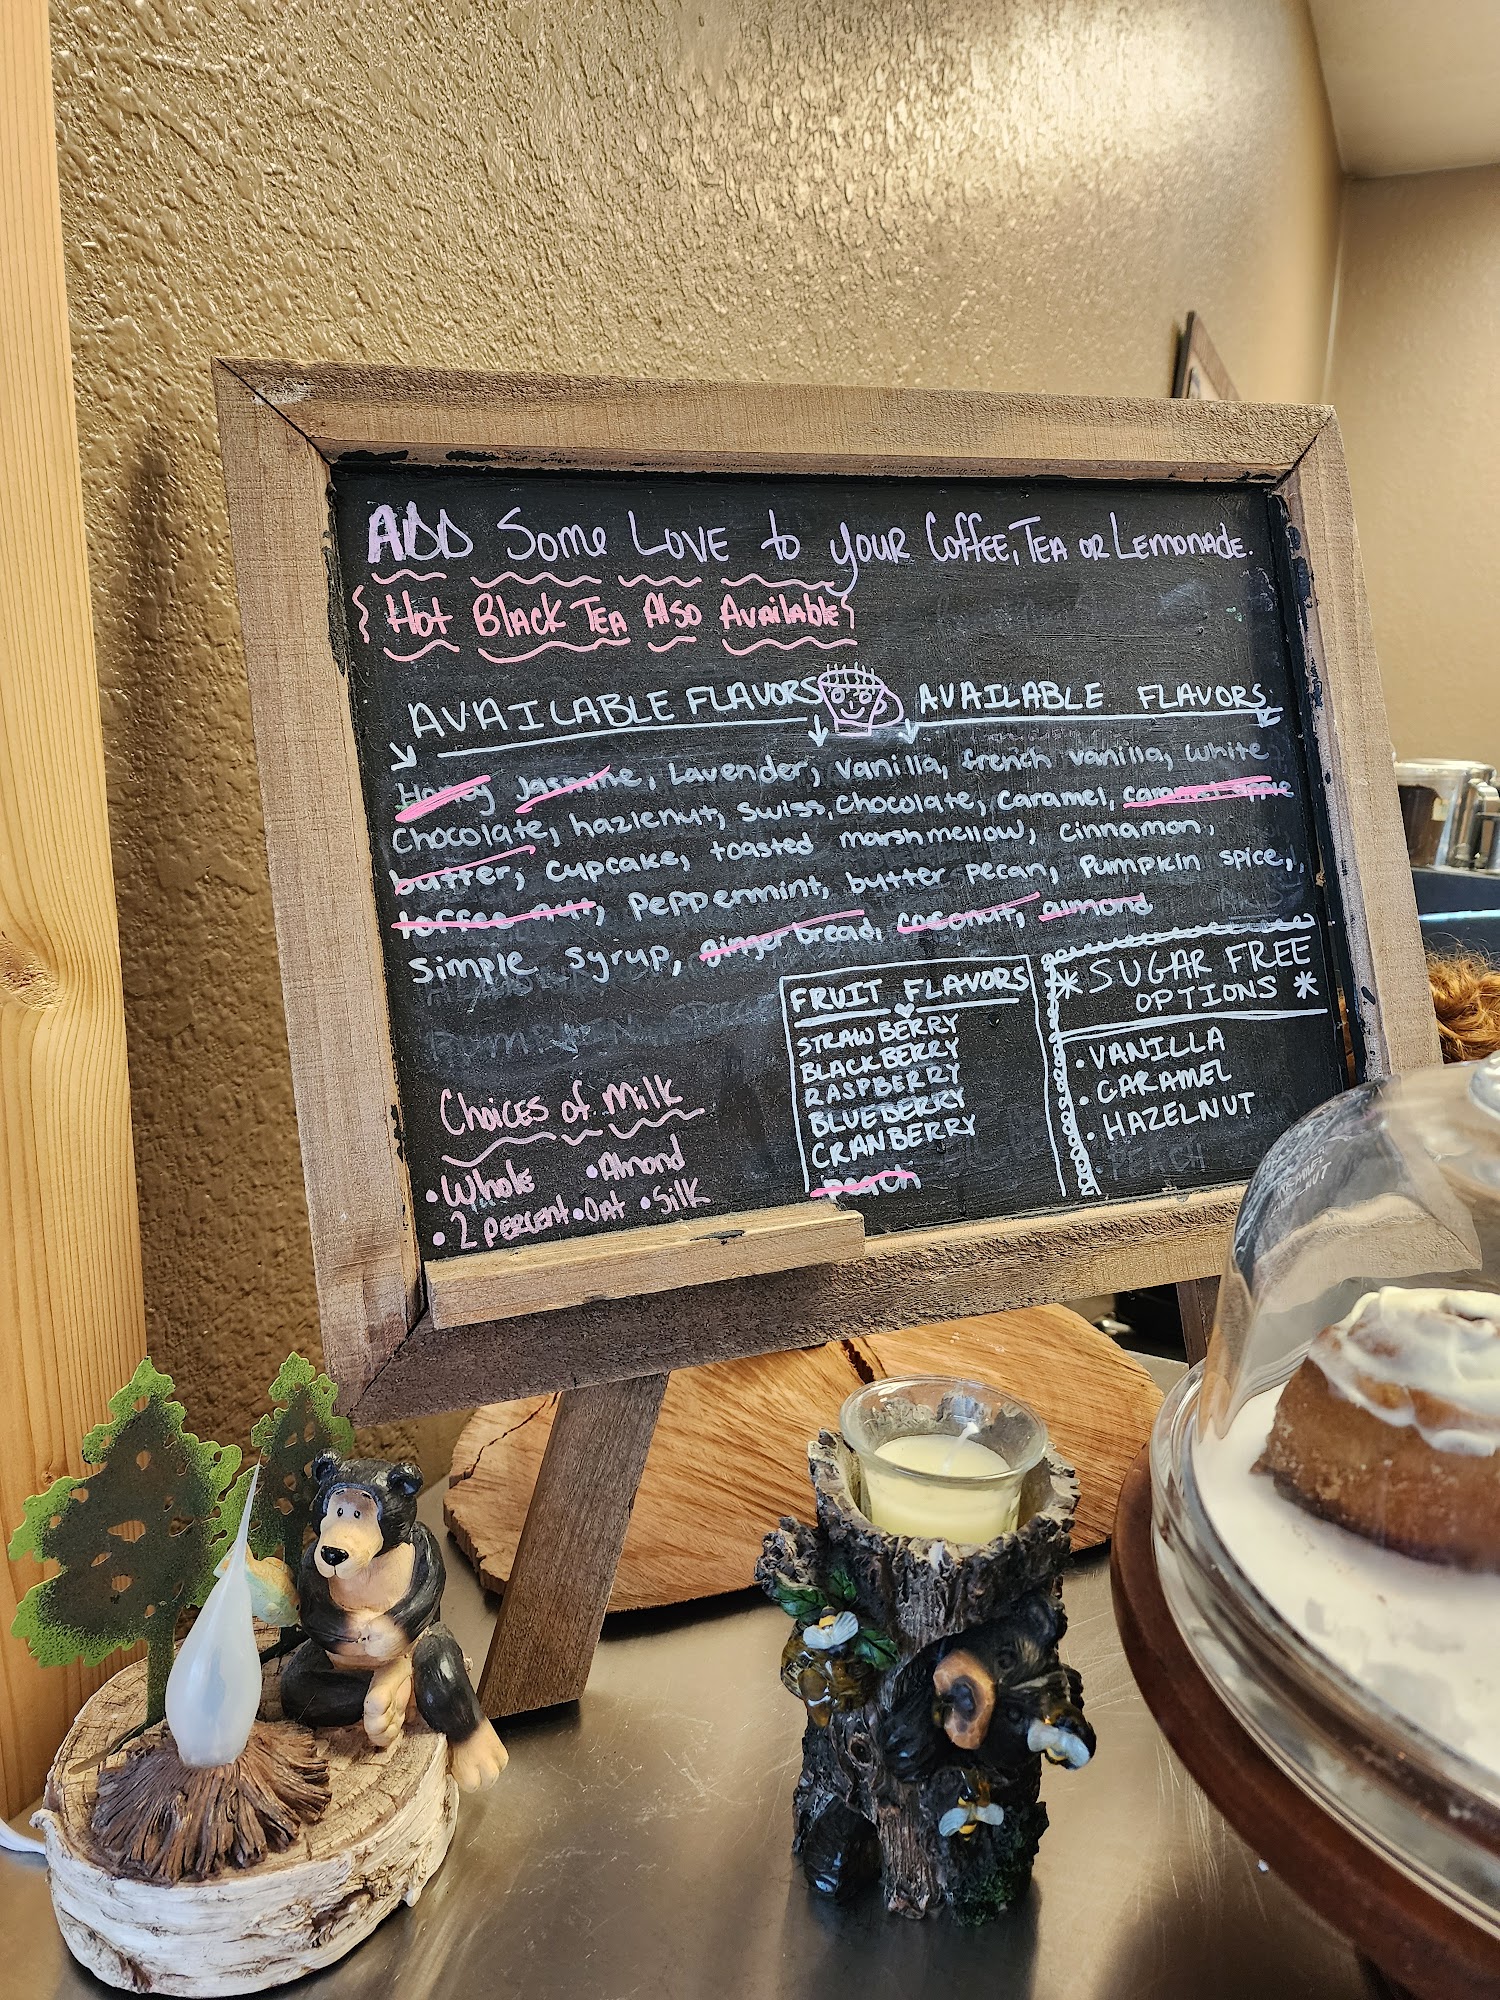 ADD Some Love to your Coffee, Tea or Lemonade.
{Hot Black Tea Also Available}
AVAILABLE FLAVORS AVAILABLE FLAVORS
Honey Jasmine, Lavender, vanilla, french vanilla, white
Chocolate, hazlenut, swiss, chocolate, caramel, caramel apple
butter, cupcake, toasted marshmellow, cinnamon,
toffee nut, peppermint, butter pecan, pumpkin spice,
simple syrup, ginger bread, coconut, almond
FRUIT FLAVORS
STRAWBERRY
BLACKBERRY
RASPBERRY
BLUEBERRY
CRANBERRY
peach
* SUGAR FREE
OPTIONS *
• VANILLA
• CARAMEL
• HAZELNUT
• PEACH
Choices of Milk
• Whole • Almond
• 2 percent • Oat • Silk